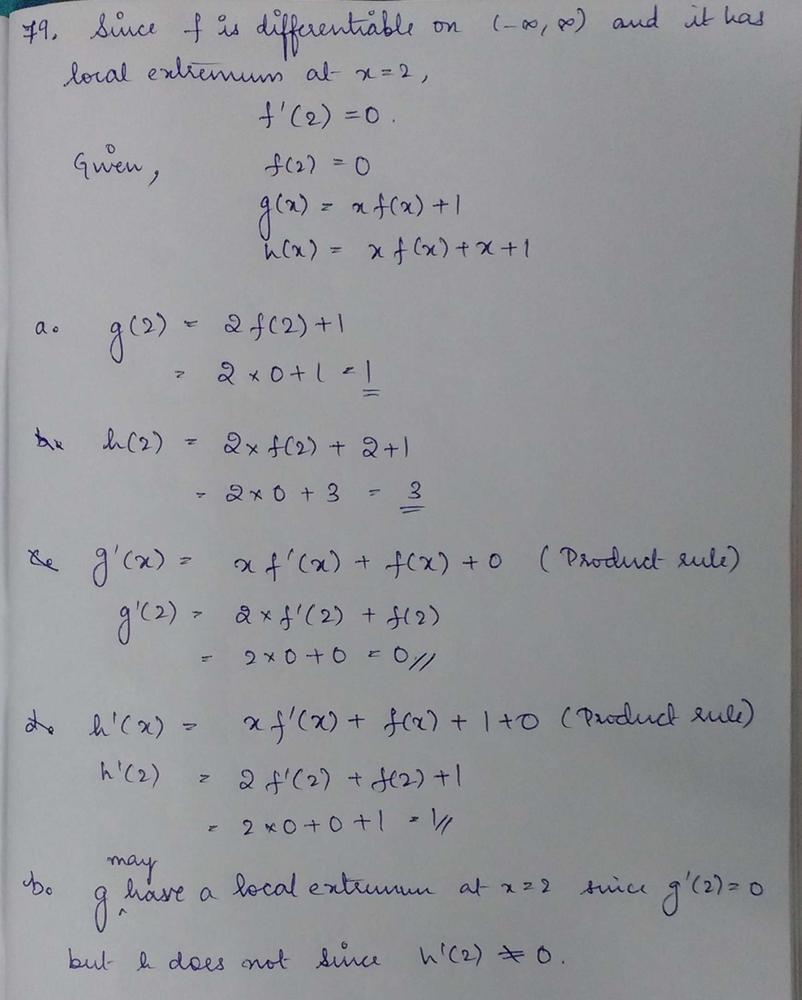 79. Since f is differentiable on (-∞, ∞) and it has
local extremum at x = 2,
f'(2) = 0.
Given, f(2) = 0
g(x) = x f(x) + 1
h(x) = x f(x) + x + 1
a. g(2) = 2 f(2) + 1
= 2 × 0 + 1 = 1
h(2) = 2 × f(2) + 2 + 1
= 2 × 0 + 3 = 3
g'(x) = x f'(x) + f(x) + 0 (Product rule)
g'(2) = 2 × f'(2) + f(2)
= 2 × 0 + 0 = 0//
h'(x) = x f'(x) + f(x) + 1 + 0 (Product rule)
h'(2) = 2 f'(2) + f(2) + 1
= 2 × 0 + 0 + 1 = 1//
b. g may have a local extremum at x = 2 since g'(2) = 0
but h does not since h'(2) ≠ 0.